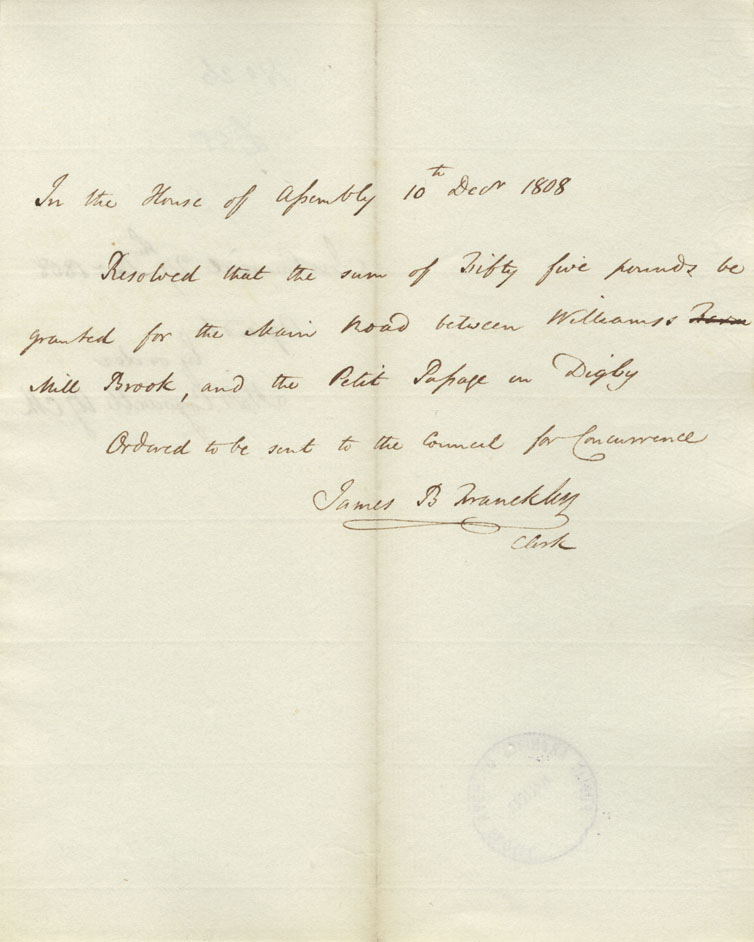 In the House of Assembly 10th Decr 1808
Resolved that the sum of Fifty five pounds be
granted for the Main Road between Williams's Farm
Mill Brook, and the Petit Passage in Digby
Ordered to be sent to the Council for Concurrence
James B Franckly
Clerk